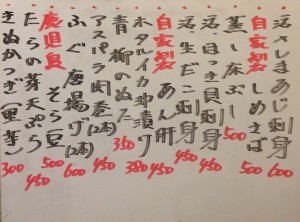 活さしまあじ刺身 600
自家製 しめさば 500
薫し床ぶし 500
活ほっき貝刺身 450
活生だこ刺身 450
自家製 あん肝 450
ホタルイカ沖漬け 380
青柳のぬた 350
アスパラ肉巻(2本) 450
ふぐ唐揚げ(2本) 600
鹿児島 そら豆 500
たらの芽天ぷら 450
きぬかつぎ(里芋) 300